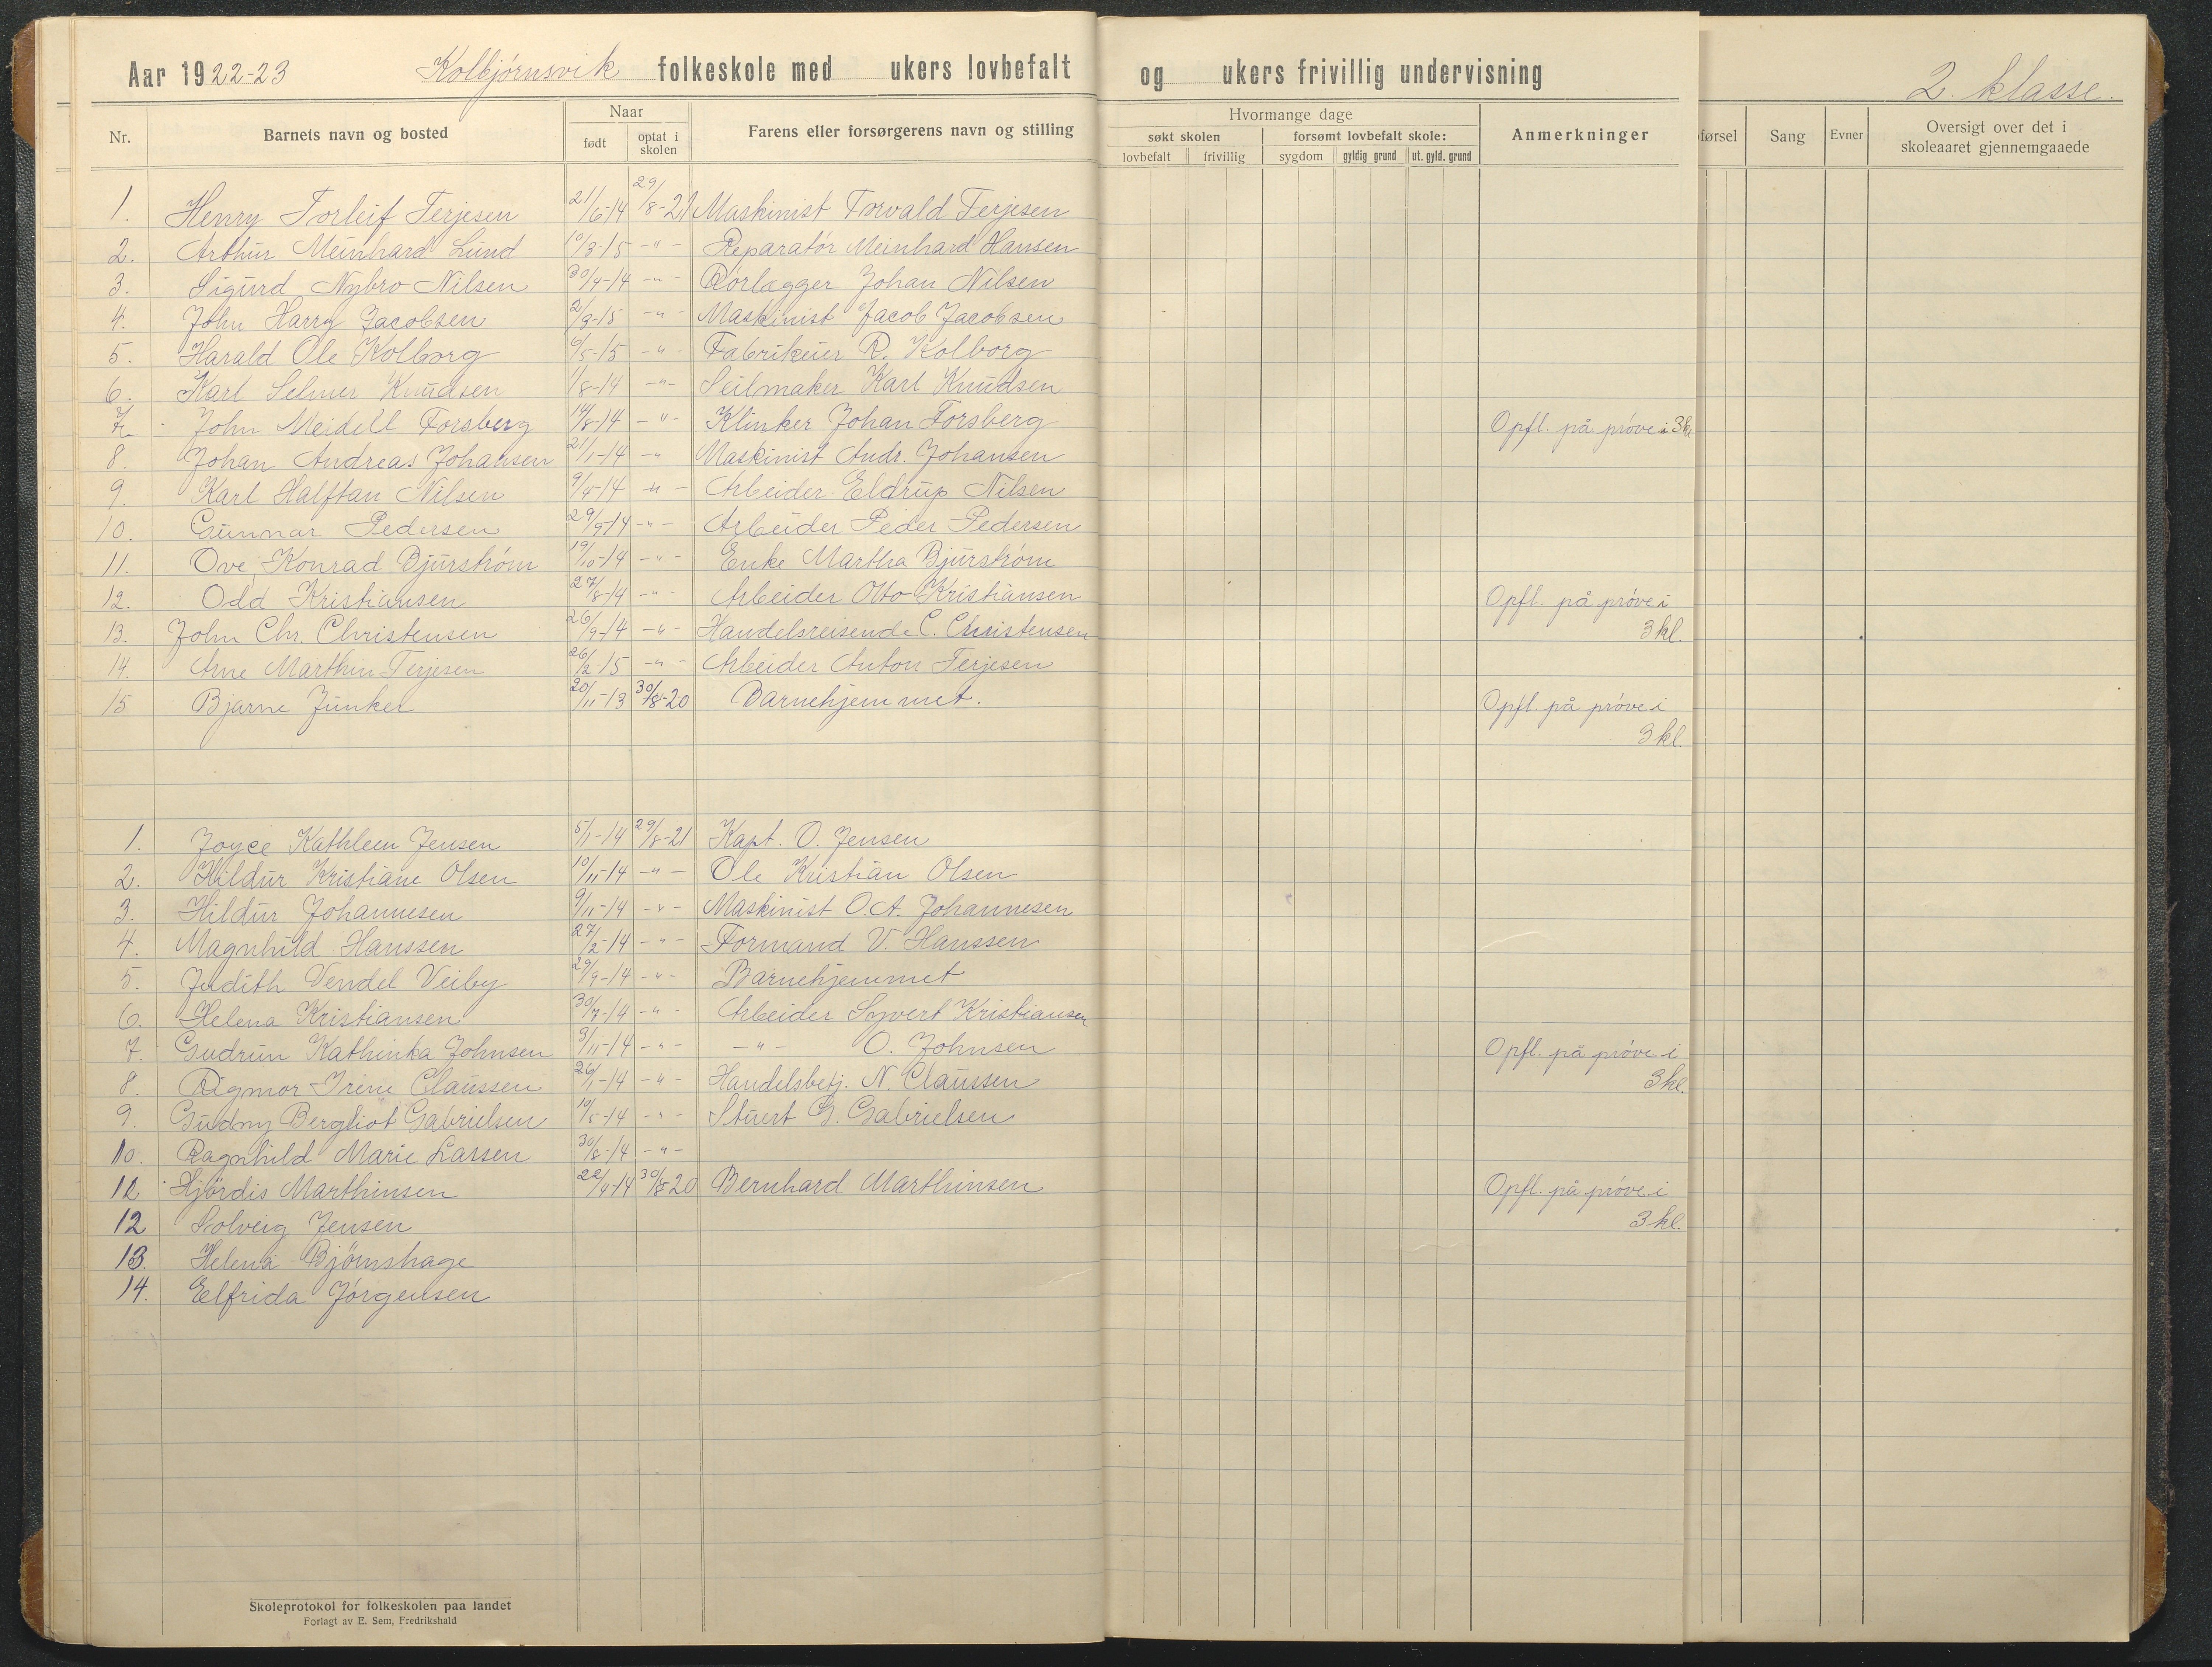 Aar 1922-23 Kolbjørnsvik folkeskole med ukers lovbefalt og ukers frivillig undervisning 2. klasse.
Nr. Barnets navn og bosted Naar født optat i skolen Farens eller forsørgerens navn og stilling Hvormange dage søkt skolen lovbefalt frivillig forsømt lovbefalt skole: sygdom gyldig grund ut. gyld. grund Anmerkninger førsel Sang Evner Oversigt over det i skoleaaret gjennemgaaede
1. Henry Torleif Terjesen 21/6-14 29/8-21 Maskinist Torvald Terjesen
2. Arthur Meinhard Lund 10/3-15 -"- Reparatør Meinhard Hansen
3. Sigurd Nybro Nilsen 30/4-14 -"- Rørlægger Johan Nilsen
4. John Harry Jacobsen 2/3-15 -"- Maskinist Jacob Jacobsen
5. Harald Ole Kolborg 6/5-15 -"- Fabrikeier R. Kolborg
6. Karl Selmer Knudsen 1/8-14 -"- Seilmaker Karl Knudsen
7. John Meidell Forsberg 14/8-14 -"- Klinker Johan Forsberg Opfl. på prøve i 3 kl
8. Johan Andreas Johansen 21/1-14 -" Maskinist Andr. Johansen
9. Karl Halftan Nilsen 9/4-14 -"- Arbeider Eldrup Nilsen
10. Gunnar Pedersen 29/9-14 -"- Arbeider Peder Pedersen
11. Ove Konrad Bjurstrøm 19/10-14 -"- Enke Martha Bjurstrøm
12. Odd Kristiansen 27/8-14 -"- Arbeider Otto Kristiansen Opfl. på prøve i
3 kl.
13. John Chr. Christensen 26/9-14 -"- Handelsreisende C. Christensen
14. Arne Marthin Terjesen 26/2-15 -"- Arbeider Anton Terjesen
15 Bjarne Junker 20/11-13 30/8-20 Barnehjemmet. Opfl. på prøve i
3 kl.
1. Joyce Kathleen Jensen 5/1-14 29/8-21 Kapt. O. Jensen
2. Hildur Kristiane Olsen 10/11-14 -"- Ole Kristian Olsen
3. Hildur Johannesen 9/11-14 -"- Maskinist O.A. Johannesen
4. Magnhild Hanssen 27/2-14 -"- Formand V. Hanssen
5. Judith Vendel Veiby 29/9-14 -"- Barnehjemmet
6. Helena Kristiansen 30/7-14 -"- Arbeider Syvert Kristiansen
7. Gudrun Kathinka Johnsen 3/11-14 -"- -"- O. Johnsen Opfl. på prøve i
3 kl.
8. Rigmor Irene Claussen 26/1-14 -"- Handelsbetj. N. Claussen
9. Gudny Bergliot Gabrielsen 10/5-14 -"- Stuert G. Gabrielsen
10. Ragnhild Marie Larsen 30/8-14 -"-
11 Hjørdis Marthinsen 22/4-14 30/8-20 Bernhard Marthinsen Opfl. på prøve i
3 kl.
12 Solveig Jensen
13. Helena Bjørnshage
14. Elfrida Jörgensen
Skoleprotokol for folkeskolen paa landet
Forlagt av E. Sem, Fredrikshald